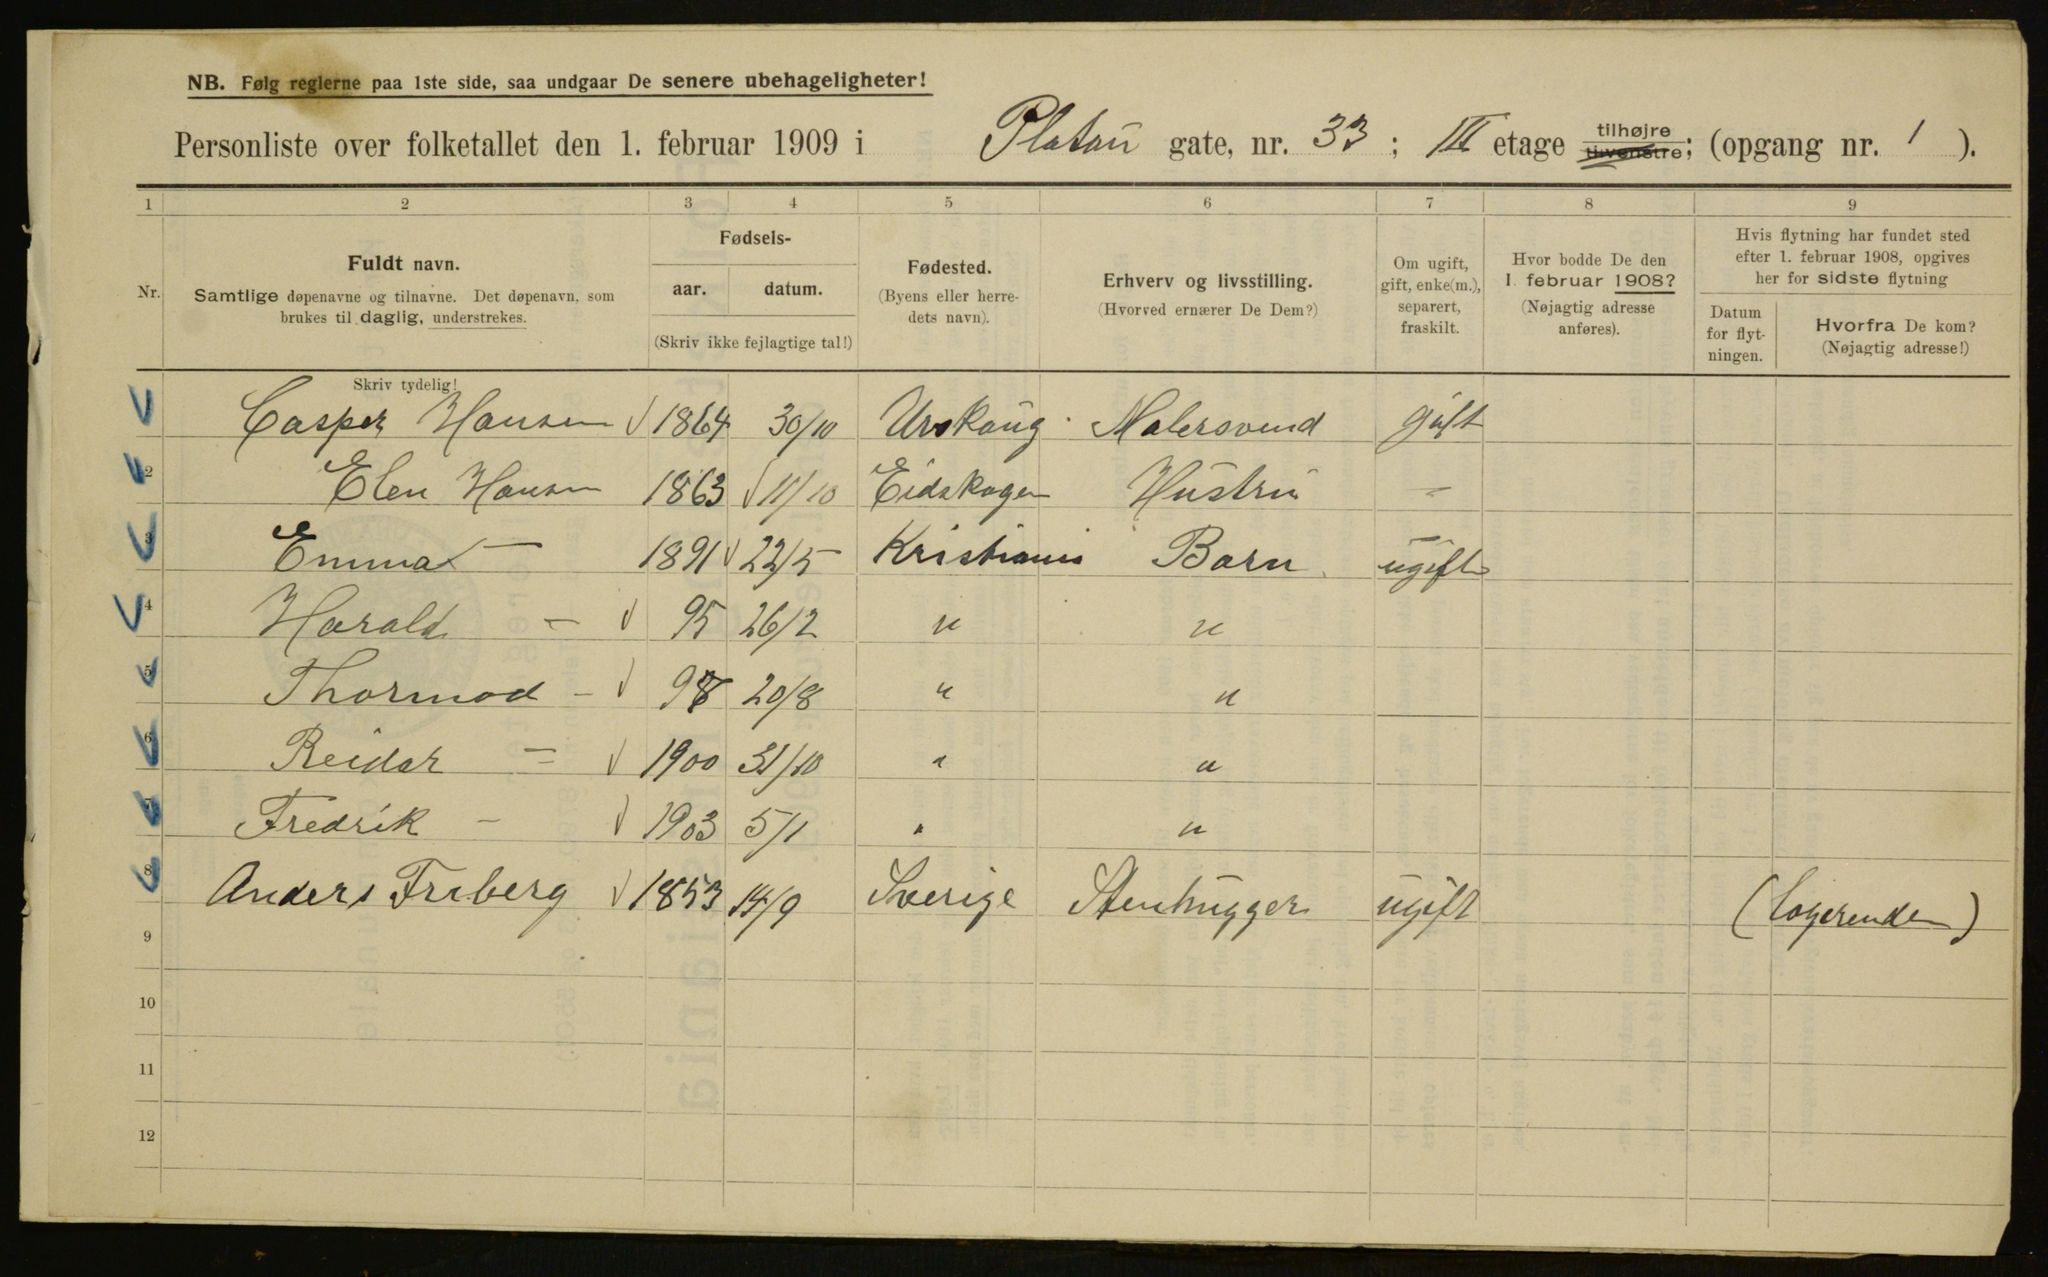 NB. Følg reglerne paa 1ste side, saa undgaar De senere ubehageligheter!
Personliste over folketallet den 1. februar 1909 i Platou gate, nr. 33 ; III etage tilhøjre tilvenstre; (opgang nr. 1 ).
1 2 3 4 5 6 7 8 9
Nr.
Fuldt navn.
Samtlige døpenavne og tilnavne. Det døpenavn, som
brukes til daglig, understrekes.
Skriv tydelig!
Fødsels-
aar. datum.
(Skriv ikke fejlagtige tal!)
Fødested.
(Byens eller herre-
dets navn).
Erhverv og livsstilling.
(Hvorved ernærer De Dem?)
Om ugift,
gift, enke(m.),
separert,
fraskilt.
Hvor bodde De den
1. februar 1908?
(Nøjagtig adresse
anføres).
Hvis flytning har fundet sted
efter 1. februar 1908, opgives
her for sidste flytning
Datum
for flyt-
ningen.
Hvorfra De kom?
(Nøjagtig adresse!)
1 Casper Hansen 1864 30/10 Urskoug Malersvend gift
2 Elen Hansen 1863 11/10 Eidskogen Hustru -
3 Emma - 1891 22/5 Kristiania Barn ugift
4 Harald - 95 26/2 " "
5 Thormod - 98 20/8 " "
6 Reidar - 1900 31/10 " "
7 Fredrik - 1903 5/1 " "
8 Anders Friberg 1853 14/9 Sverige Stenhugger ugift (Logerende)
9
10
11
12